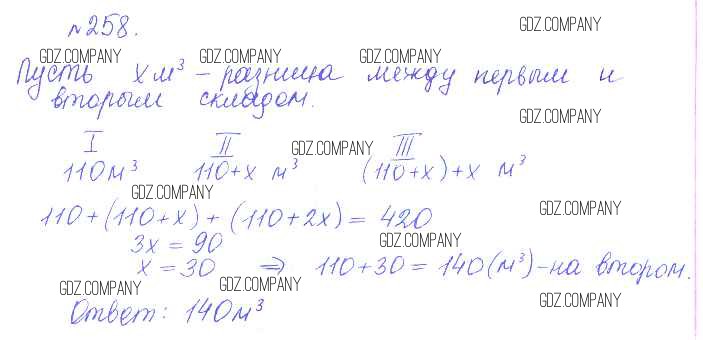 №258.
GDZ.COMPANY
GDZ.COMPANY GDZ.COMPANY GDZ.COMPANY
Пусть x м³ – разница между первым и
вторым складом.
GDZ.COMPANY
I II GDZ.COMPANY III
110м³ 110+x м³ (110+x)+x м³
GDZ.COMPANY
110+(110+x)+(110+2x)=420 GDZ.COMPANY
3x=90 GDZ.COMPANY
x=30 ⇒ 110+30=140(м³)–на втором.
GDZ.COMPANY GDZ.COMPANY GDZ.COMPANY
Ответ: 140м³